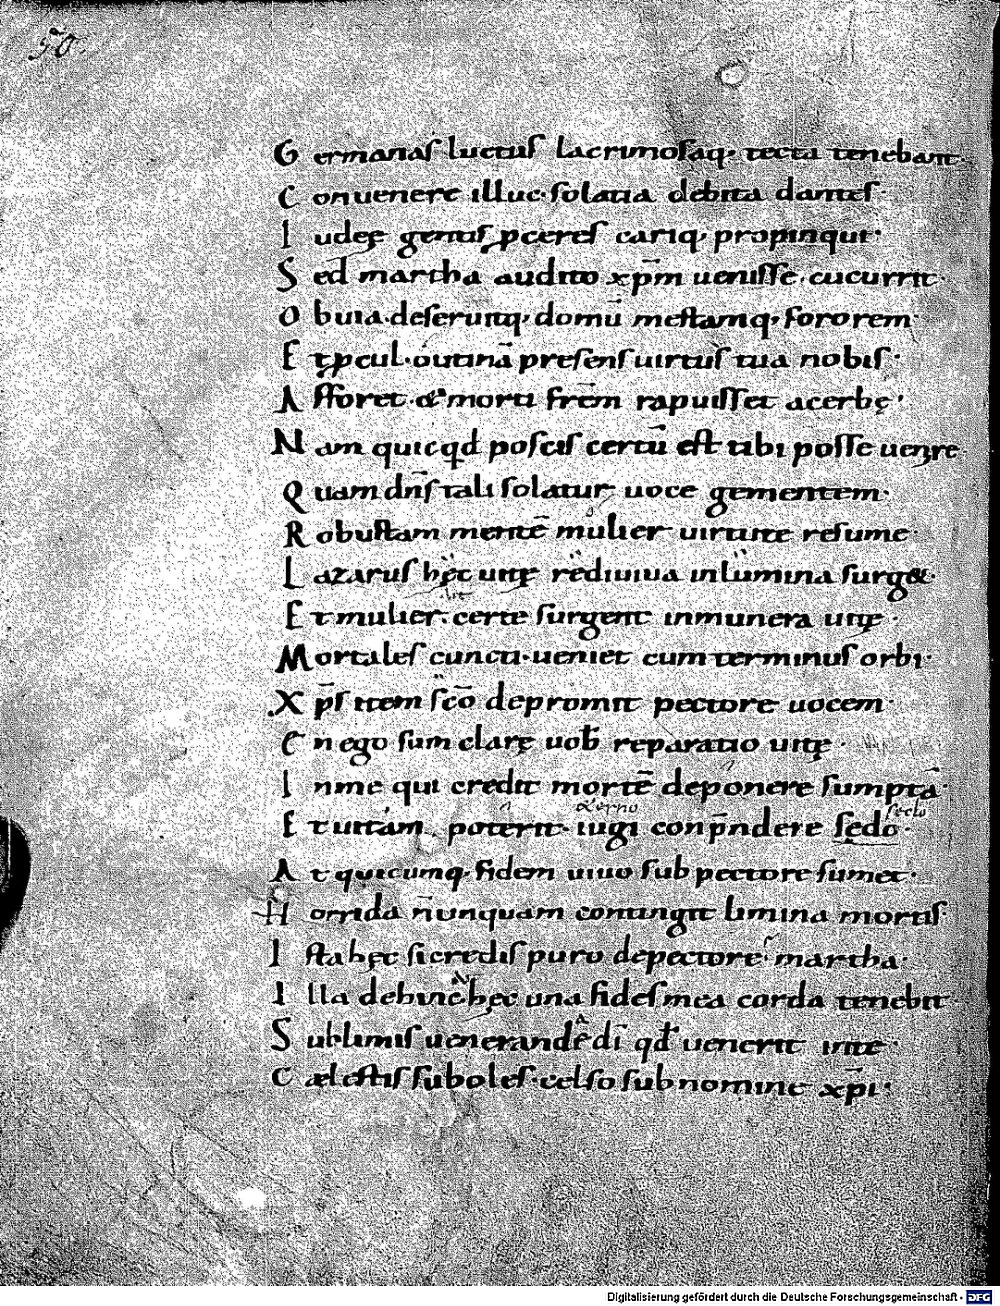 50
Germanas luctus lacrimosaq; tecta tenebant.
Conuenere illuc. solatia debita dantes.
Iudeę gentis ꝓceres cariq; propinqui.
Sed martha audito xp̄m uenisse. cucurrit.
Obuia. deseruitq; domū mestamq; sororem.
Et ꝓcul. o utinā presens uirtus tua nobis.
Afforet. & morti frēm rapuisset acerbę.
Nam quicqd poscis certū est tibi posse uenire
Quam dn̄s tali solatur uoce gementem.
Robustam mentē mulier uirtute resume.
Lazarus hęc uitę rediuiua in lumina surg&.
Et mulier. certe surgent in munera uitę.
Mortales cuncti. ueniet cum terminus orbi.
Xp̄s item sc̄o depromit pectore uocem.
En ego sum clarę uob reparatio uitę.
In me qui credit mortē deponere sumptā.
&erno seclo
Et uitam poterit iugi conp̄ndere sedo.
At quicumq; fidem uiuo sub pectore sumet.
Horrida nunquam continget limina mortis.
Ista hęc si credis puro de pectore martha.
Illa dehinc hęc una fides mea corda tenebit
Sublimis uenerande di qd uenerit in te.
Cælestis suboles. celso sub nomine xp̄i.
Digitalisierung gefördert durch die Deutsche Forschungsgemeinschaft - DFG